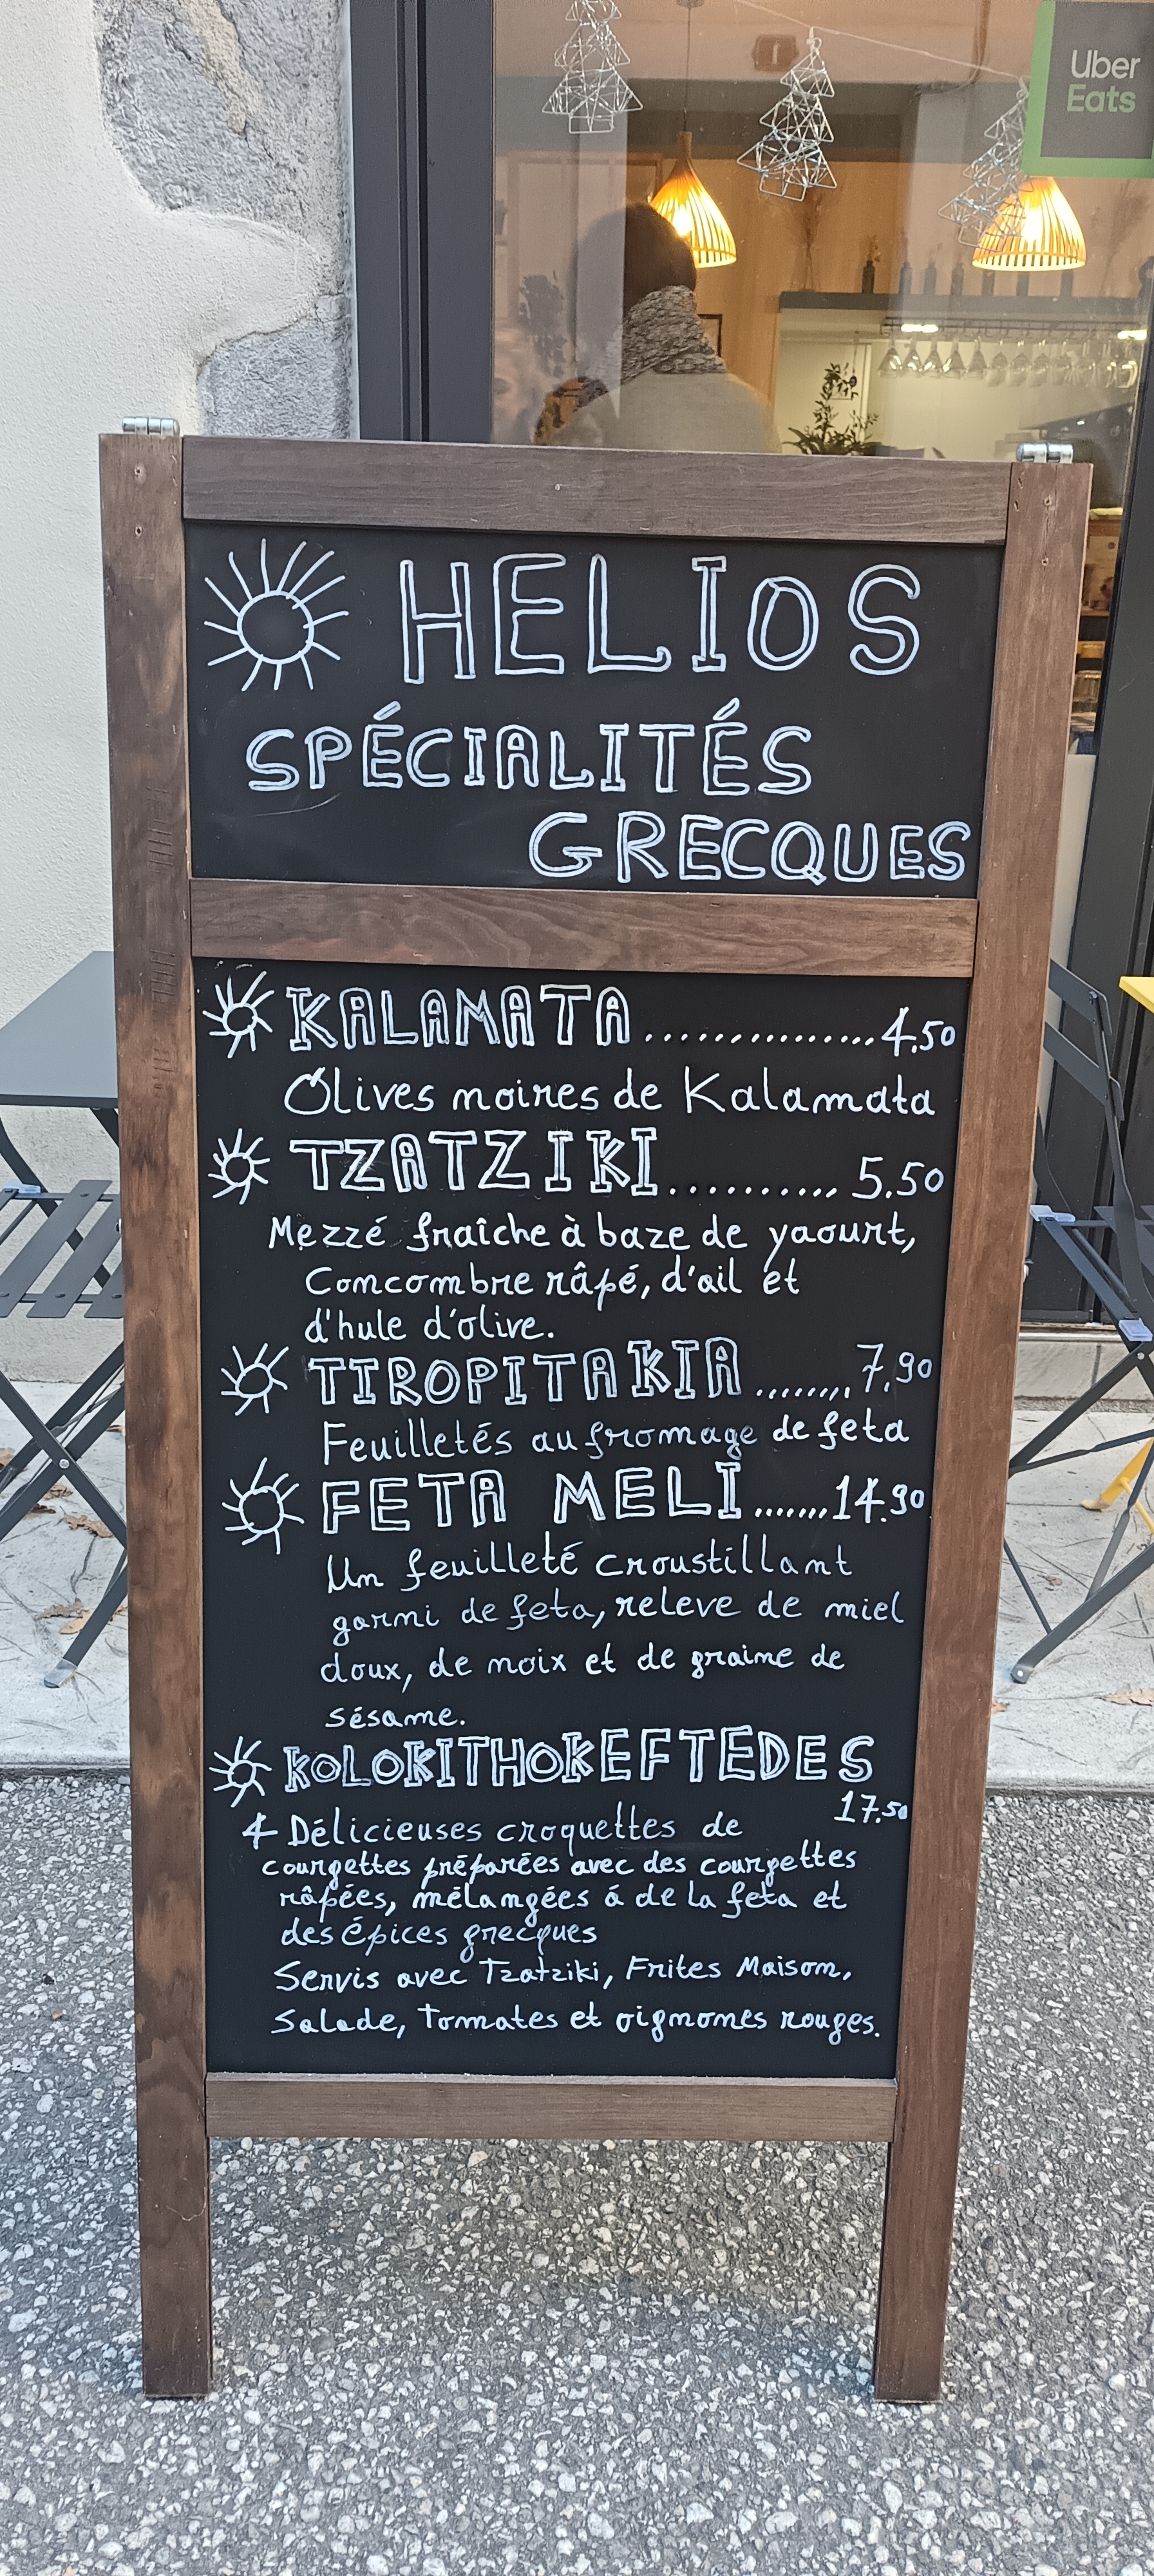 Uber
Eats
HELIOS
SPÉCIALITÉS
GRECQUES
KALAMATA...............4.50
Olives noires de Kalamata
TZATZIKI.......... 5.50
Mezzé fraîche à baze de yaourt,
Concombre râpé, d'ail et
d'hule d'olive.
TIROPITAKIA ........7.90
Feuilletés au fromage de feta
FETA MELI.......14.90
Un feuilleté croustillant
garni de feta, releve de miel
doux, de noix et de graine de
sésame.
KOLOKITHOKEFTEDES
17.50
4 Délicieuses croquettes de
courgettes préparées avec des courgettes
râpées, mélangées á de la feta et
des épices grecques
Servis avec Tzatziki, Frites Maison,
Salade, Tomates et oignones rouges.